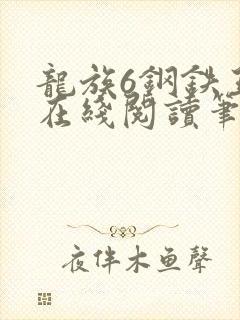 龍族6鋼鉄
在綫閱讀筆
夜伴木鱼聲